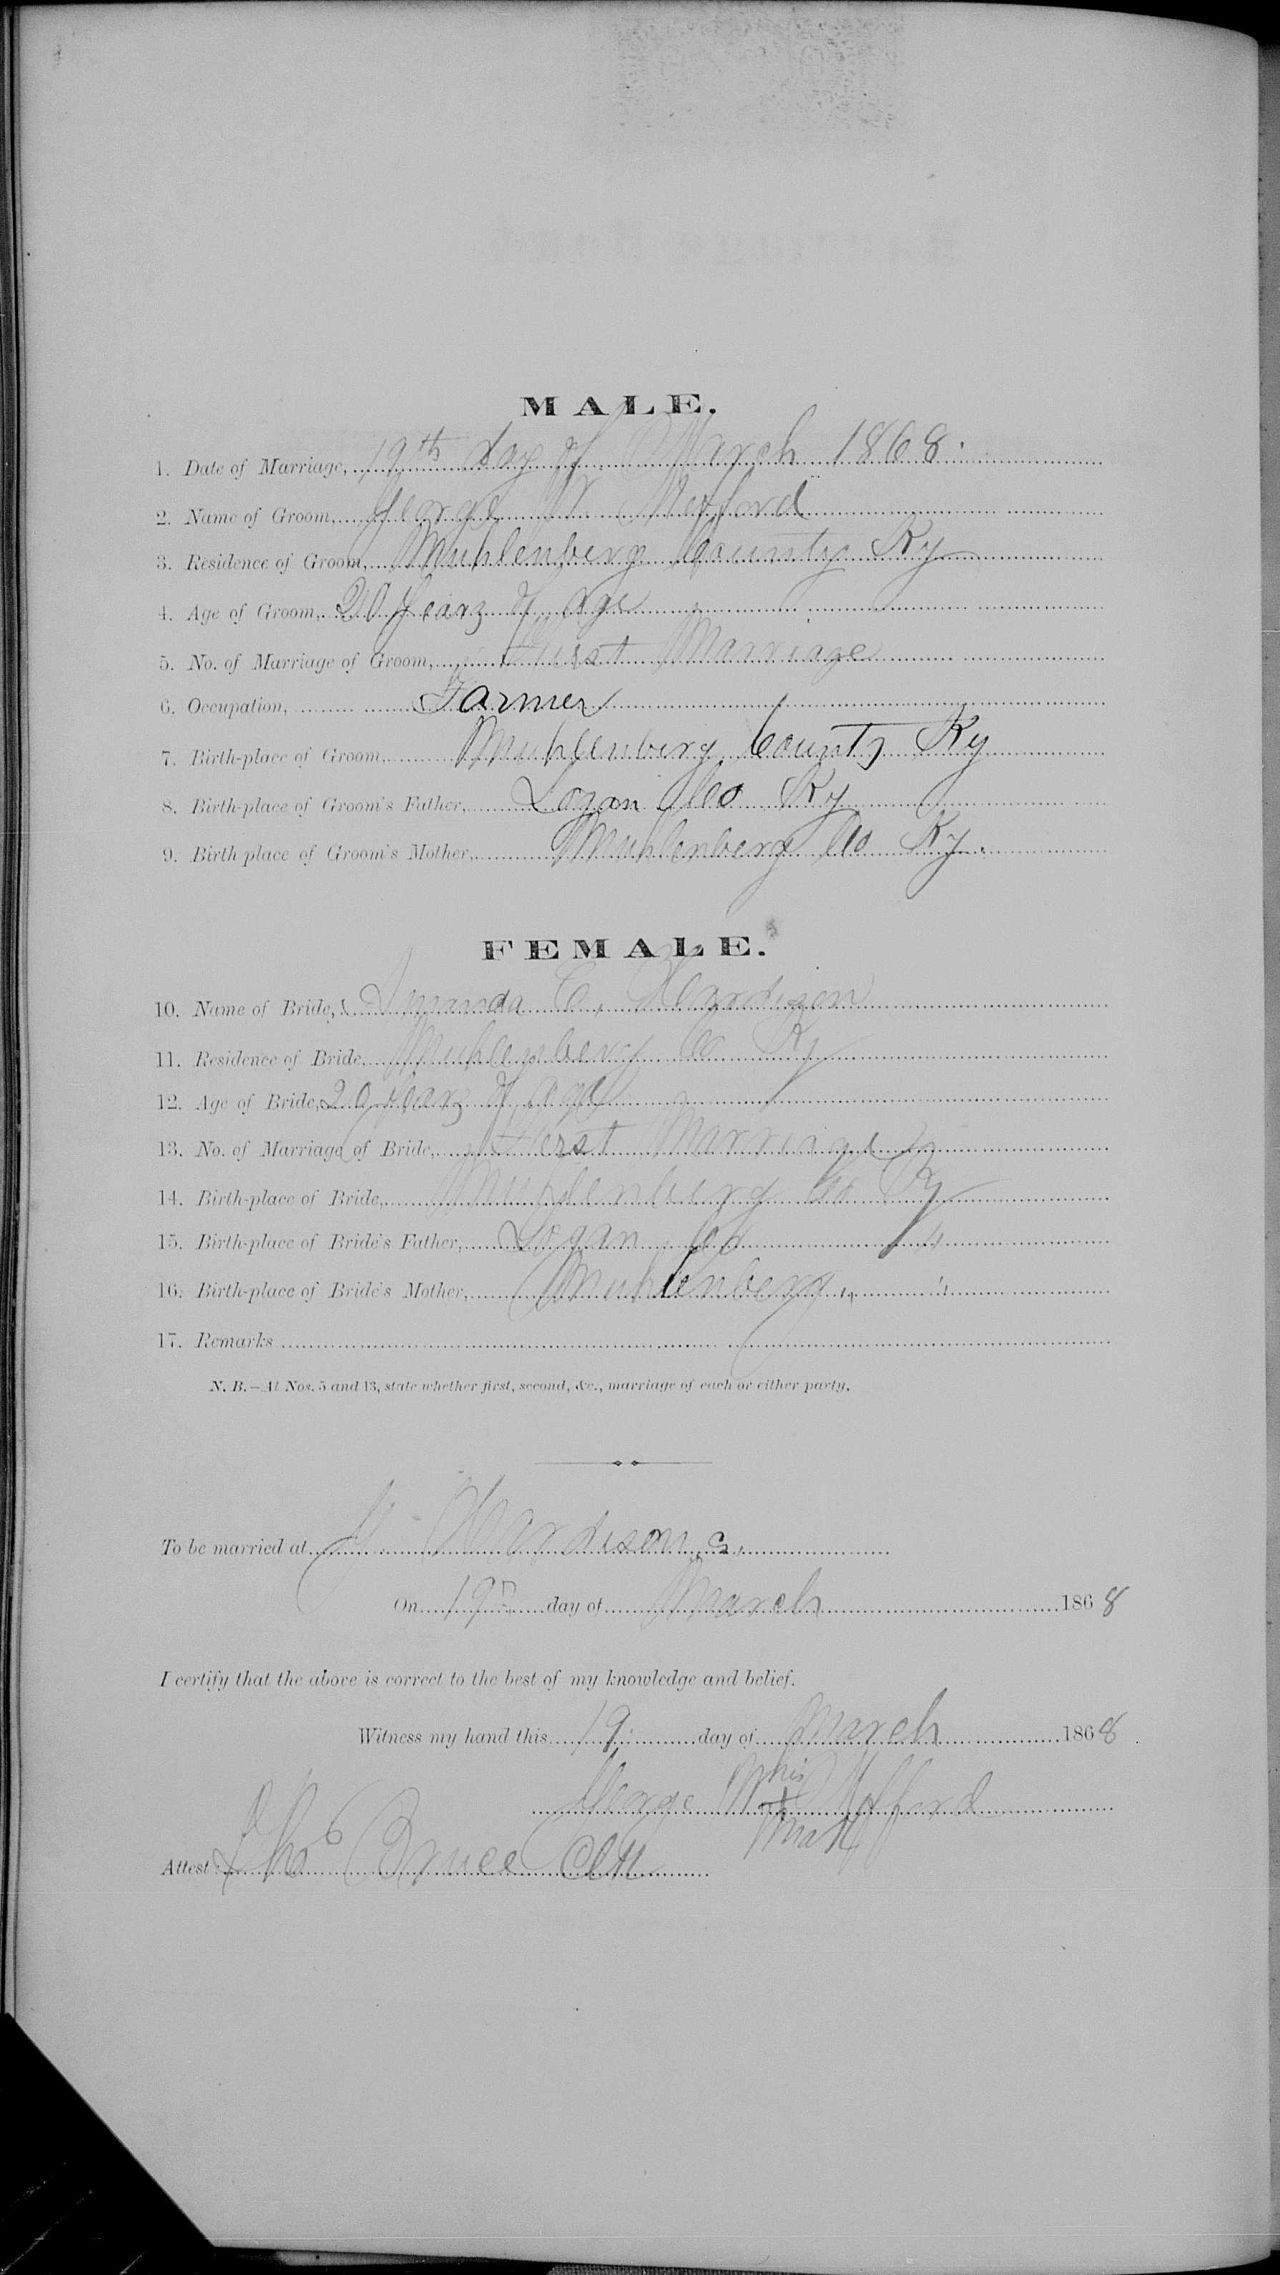 MALE.
1. Date of Marriage, 19th day of March 1868.
2. Name of Groom, George W Mefford
3. Residence of Groom, Muhlenberg County Ky
4. Age of Groom, 20 years of age
5. No. of Marriage of Groom, First Marriage
6. Occupation, Farmer
7. Birth-place of Groom, Muhlenberg County Ky
8. Birth-place of Groom's Father, Logan Co Ky
9. Birth place of Groom's Mother, Muhlenberg Co Ky.
FEMALE.
10. Name of Bride, C. Hardison
11. Residence of Bride, Muhlenberg Co Ky
12. Age of Bride, 20 years of age
13. No. of Marriage of Bride, First Marriage
14. Birth-place of Bride, Muhlenberg Co Ky
15. Birth-place of Bride's Father, Logan Co "
16. Birth-place of Bride's Mother, Muhlenberg " "
17. Remarks
N. B.—At Nos. 5 and 13, state whether first, second, &c., marriage of each or either party.
To be married at Hardisons.
On 19th day of March 1868
I certify that the above is correct to the best of my knowledge and belief.
Witness my hand this 19 day of March 1868
his
George W + Mefford
mark
Attest: Thos Bruce Clk